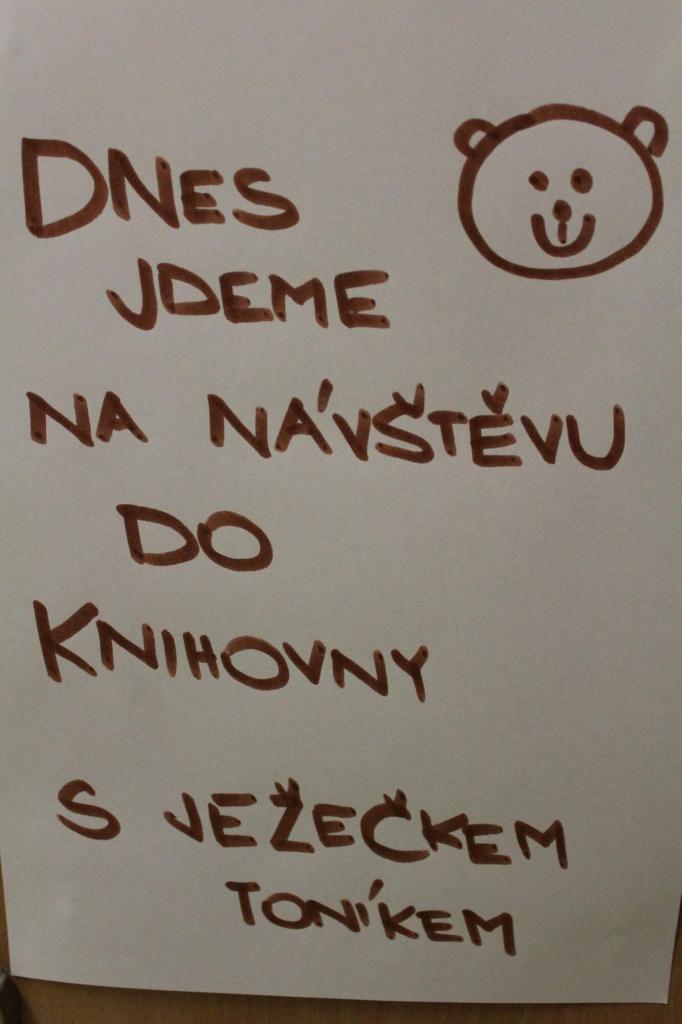 DNES
JDEME
NA NÁVŠTĚVU
DO
KNIHOVNY
S JEŽEČKEM
TONÍKEM